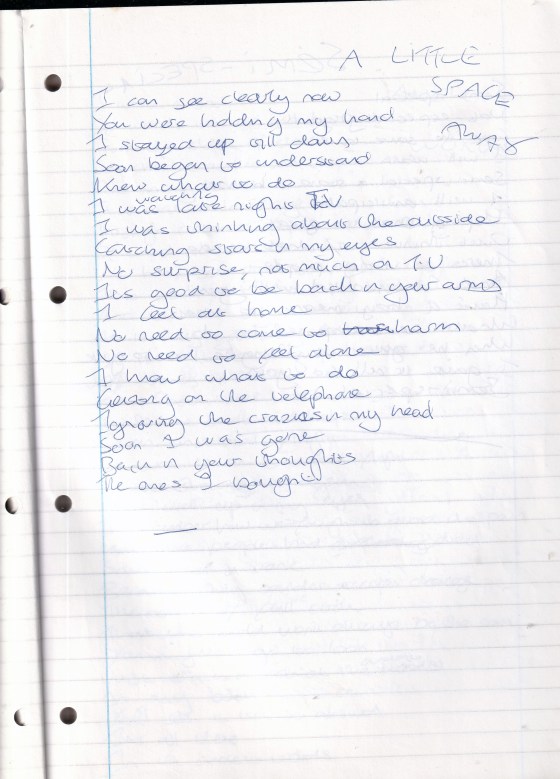 A LITTLE
SPACE
AWAY
I can see clearly now
You were holding my hand
I stayed up till dawn
Soon began to understand
Knew what to do
I was watching late nights T.V
I was thinking about the outside
Catching stars in my eyes
No surprise, not much on T.V
Its good to be back in your arms
I feel at home
No need to come to harm
No need to feel alone
I know what to do
Getting on the telephone
Ignoring the crazies in my head
Soon I was gone
Back in your thoughts
The ones I bought